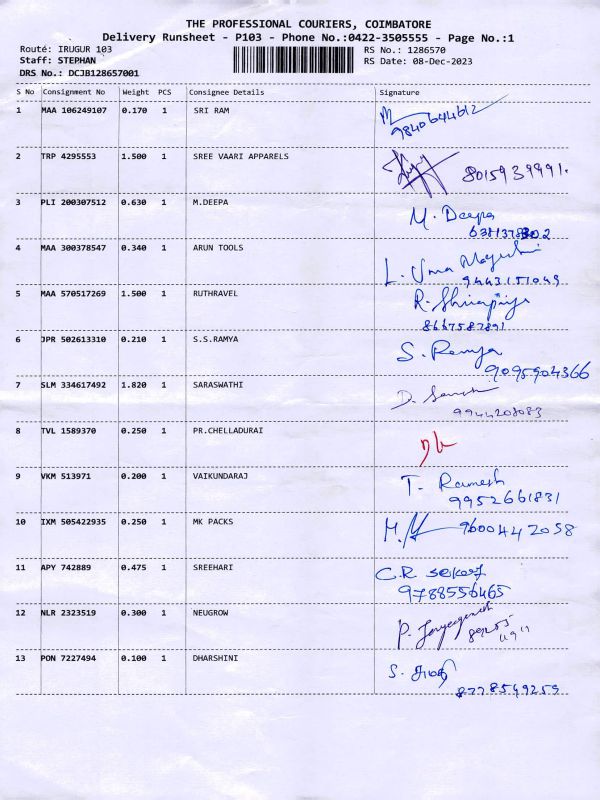 THE PROFESSIONAL COURIERS, COIMBATORE
Delivery Runsheet - P103 - Phone No.:0422-3505555 - Page No.:1
Route: IRUGUR 103 RS No.: 1286570
Staff: STEPHAN RS Date: 08-Dec-2023
DRS No.: DCJB128657001
S No Consignment No Weight PCS Consignee Details Signature
1 MAA 106249107 0.170 1 SRI RAM
9840644612
2 TRP 4295553 1.500 1 SREE VAARI APPARELS 8015939991.
3 PLI 200307512 0.630 1 M.DEEPA M. Deepa
4 MAA 300378547 0.340 1 ARUN TOOLS
L. Uma
9443151049
5 MAA 570517269 1.500 1 RUTHRAVEL R. Shivapriya
8667587891
6 JPR 502613310 0.210 1 S.S.RAMYA S. Ramya
9095904366
7 SLM 334617492 1.820 1 SARASWATHI D.
9944208083
8 TVL 1589370 0.250 1 PR.CHELLADURAI
9 VKM 513971 0.200 1 VAIKUNDARAJ T. Ramesh
9952661831
10 IXM 505422935 0.250 1 MK PACKS 9600442058
11 APY 742889 0.475 1 SREEHARI C.R
9788556465
12 NLR 2323519 0.300 1 NEUGROW P.
13 PON 7227494 0.100 1 DHARSHINI S.
8778549259